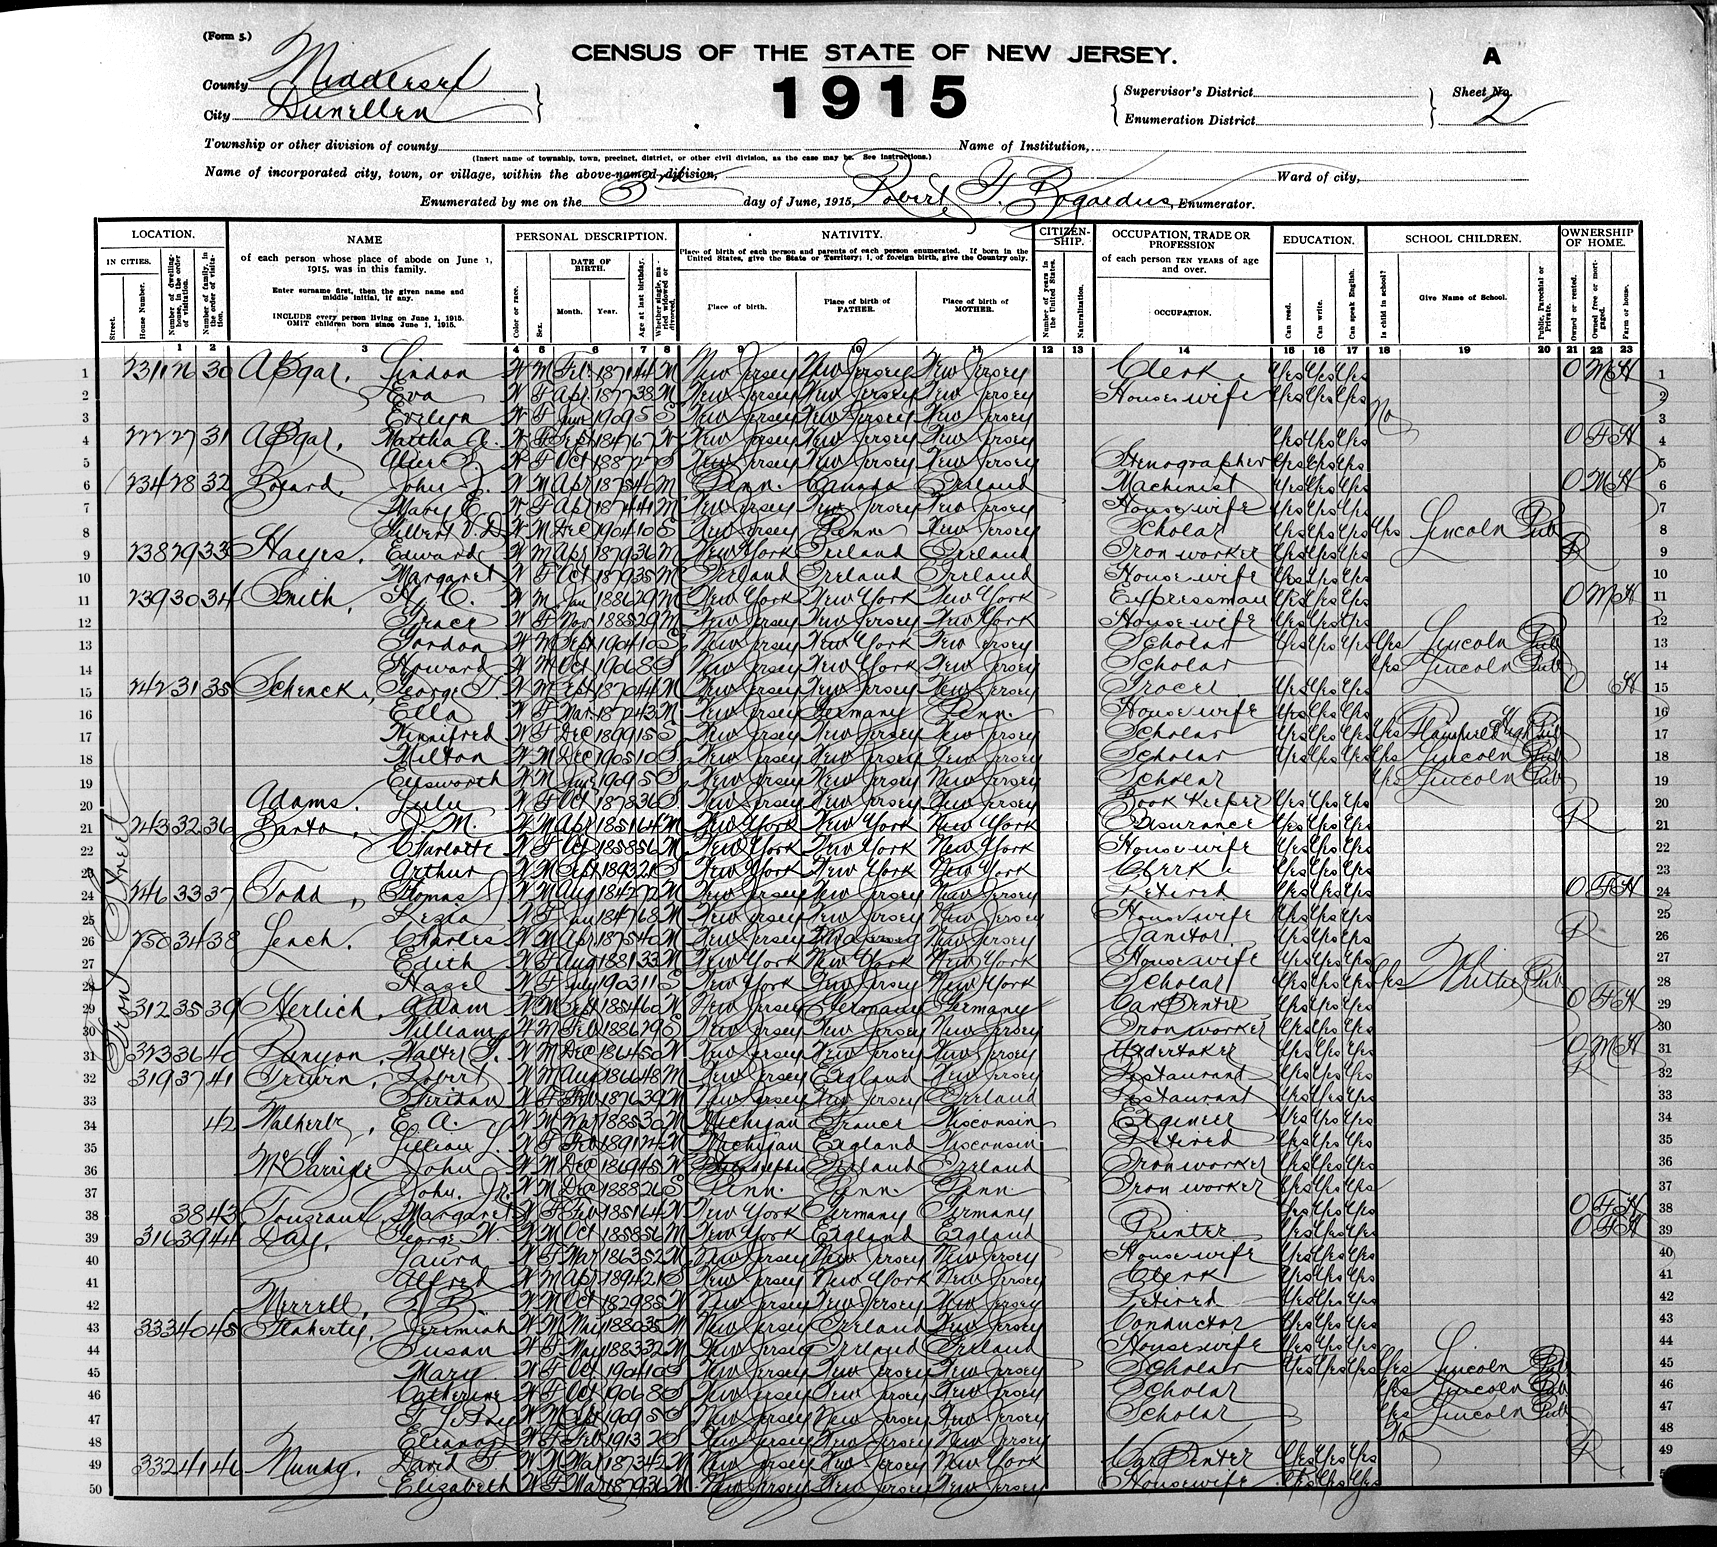 (Form 5.)
CENSUS OF THE STATE OF NEW JERSEY.
A
1915
County Middlesex
City Dunellen
Supervisor's District
Enumeration District
Sheet No. 2
Township or other division of county
Name of Institution,
(Insert name of township, town, precinct, district, or other civil division, as the case may be. See instructions.)
Name of incorporated city, town, or village, within the above-named division,
Ward of city,
Enumerated by me on the 3rd day of June, 1915, Robert F. Bogardus, Enumerator.
LOCATION. NAME PERSONAL DESCRIPTION. NATIVITY. CITIZEN-SHIP. OCCUPATION, TRADE OR PROFESSION EDUCATION. SCHOOL CHILDREN. OWNERSHIP OF HOME.
IN CITIES.
Street.
House Number.
Number of dwelling-house, in the order of visitation.
Number of family, in the order of visitation.
of each person whose place of abode on June 1, 1915, was in this family.
Enter surname first, then the given name and middle initial, if any.
INCLUDE every person living on June 1, 1915. OMIT children born since June 1, 1915.
Color or race.
Sex.
DATE OF BIRTH.
Month. Year.
Age at last birthday.
Whether single, married widowed or divorced.
Place of birth of each person and parents of each person enumerated. If born in the United States, give the State or Territory; 1, of foreign birth, give the Country only.
Place of birth.
Place of birth of FATHER.
Place of birth of MOTHER.
Number of years in the United States.
Naturalization.
of each person TEN YEARS of age and over.
OCCUPATION.
Can read.
Can write.
Can speak English.
Is child in school?
Give Name of School.
Public, Parochial or Private.
Owned or rented.
Owned free or mortgaged.
Farm or house.
1 2 3 4 5 6 7 8 9 10 11 12 13 14 15 16 17 18 19 20 21 22 23
Front Street
1 231 26 30 Apgar, Lindon W M Feb 1871 44 M New Jersey New Jersey New Jersey Clerk Yes Yes Yes O M H 1
2 Eva W F Apr 1877 38 M New Jersey New Jersey New Jersey Housewife Yes Yes Yes 2
3 Evelyn W F Jun 1909 5 S New Jersey New Jersey New Jersey No 3
4 222 27 31 Apgar, Martha A. W F Sept 1847 67 W New Jersey New Jersey New Jersey Yes Yes Yes O F H 4
5 W F Oct 1887 27 S New Jersey New Jersey New Jersey Stenographer Yes Yes Yes 5
6 234 28 32 John J. W M Apr 1875 40 M Penn. Canada Ireland Machinist Yes Yes Yes O M H 6
7 Mary E. W F Apr 1874 41 M New Jersey New Jersey New Jersey Housewife Yes Yes Yes 7
8 Gilbert V. D. W M Dec 1904 10 S New Jersey Penn New Jersey Scholar Yes Yes Yes Yes Lincoln Pub 8
9 238 29 33 Hayes, Edward W M Apr 1879 36 M New York Ireland Ireland Iron worker Yes Yes Yes R 9
10 Margaret W F Oct 1879 35 M Ireland Ireland Ireland Housewife Yes Yes Yes 10
11 239 30 34 Smith, H. C. W M Jan 1886 29 M New York New York New York Expressman Yes Yes Yes O M H 11
12 Grace W F Nov 1885 29 M New Jersey New Jersey New York Housewife Yes Yes Yes 12
13 Gordon W M Sept 1904 10 S New Jersey New York New Jersey Scholar Yes Yes Yes Yes Lincoln Pub 13
14 Howard W M Oct 1906 8 S New Jersey New York New Jersey Scholar Yes Lincoln Pub 14
15 242 31 35 Schenck, George W M Sept 1870 44 M New Jersey New Jersey New Jersey Grocer Yes Yes Yes O H 15
16 Ella W F Mar 1872 43 M New Jersey Germany Penn. Housewife Yes Yes Yes 16
17 Winnifred W F Dec 1899 15 S New Jersey New Jersey New Jersey Scholar Yes Yes Yes Yes Plainfield High Pub 17
18 Milton W M Dec 1905 10 S New Jersey New Jersey New Jersey Scholar Yes Yes Yes Yes Lincoln Pub 18
19 Ellsworth W M June 1909 5 S New Jersey New Jersey New Jersey Scholar Yes Lincoln Pub 19
20 Adams, Lulu W F Oct 1878 36 S New Jersey New Jersey New Jersey Book Keeper Yes Yes Yes 20
21 243 32 36 M. W M Apr 1851 64 M New York New York New York Insurance Yes Yes Yes R 21
22 Charlotte W F Oct 1858 56 M New York New York New York Housewife Yes Yes Yes 22
23 Arthur W M Sept 1893 21 S New York New York New York Clerk Yes Yes Yes 23
24 246 33 37 Todd, Thomas W M Aug 1842 72 M New Jersey New Jersey New Jersey Retired Yes Yes Yes O F H 24
25 W F Jan 1847 68 M New Jersey New Jersey New Jersey Housewife Yes Yes Yes 25
26 250 34 38 Leach, Charles W M Apr 1875 40 M New Jersey New Jersey Janitor Yes Yes Yes R 26
27 Edith W F Aug 1881 33 M New York New York New York Housewife Yes Yes Yes 27
28 Hazel W F July 1903 11 S New York New Jersey New York Scholar Yes Yes Yes Yes Pub 28
29 312 35 39 Herlich, Adam W M Sept 1854 60 W New Jersey Germany Germany Carpenter Yes Yes Yes O F H 29
30 William W M Feb 1886 29 S New Jersey New Jersey New Jersey Iron worker Yes Yes Yes 30
31 323 36 40 Runyon, Walter W M Dec 1864 50 W New Jersey New Jersey New Jersey Undertaker Yes Yes Yes O M H 31
32 319 37 41 Irwin, Robert W M Aug 1866 48 M New Jersey England New Jersey Restaurant Yes Yes Yes 32
33 W F Feb 1876 39 M New Jersey New Jersey Ireland Restaurant Yes Yes Yes 33
34 42 E. A. W M Mar 1885 30 M Michigan France Wisconsin Engineer Yes Yes Yes 34
35 Lillian L. W F Feb 1891 24 M Michigan England Wisconsin Retired Yes Yes Yes 35
36 John W M Dec 1869 45 W Ireland Ireland Iron worker Yes Yes Yes 36
37 John, Jr. W M Dec 1888 26 S Penn. Penn Penn Iron worker Yes Yes Yes 37
38 38 43 Margaret W F Feb 1851 64 W New York Germany Germany Yes Yes Yes O F H 38
39 316 39 44 Day, George W. W M Oct 1858 56 M New York England England Printer Yes Yes Yes O F H 39
40 Laura W F Mar 1863 52 M New Jersey New Jersey New Jersey Housewife Yes Yes Yes 40
41 Alfred W M Apr 1894 21 S New Jersey New York New Jersey Clerk Yes Yes Yes 41
42 Merrell, W M Oct 1829 85 W New Jersey New Jersey New Jersey Retired Yes Yes Yes 42
43 333 40 45 Flaherty, Jeremiah W M 1880 35 M New Jersey Ireland New Jersey Conductor Yes Yes Yes 43
44 Susan W F May 1883 32 M New Jersey Ireland Ireland Housewife Yes Yes Yes 44
45 Mary W F Oct 1904 10 S New Jersey New Jersey New Jersey Scholar Yes Yes Yes Yes Lincoln Pub 45
46 Catherine W F Oct 1906 8 S New Jersey New Jersey New Jersey Scholar Yes Lincoln Pub 46
47 W M Sept 1909 5 S New Jersey New Jersey New Jersey Scholar Yes Lincoln Pub 47
48 Eleanor W F Feb 1913 2 S New Jersey New Jersey New Jersey No 48
49 332 41 46 Mundy, David F W M Mar 1873 42 M New Jersey New Jersey New York Carpenter Yes Yes Yes R 49
50 Elizabeth W F Mar 1879 36 M New Jersey New Jersey New Jersey Housewife Yes Yes Yes